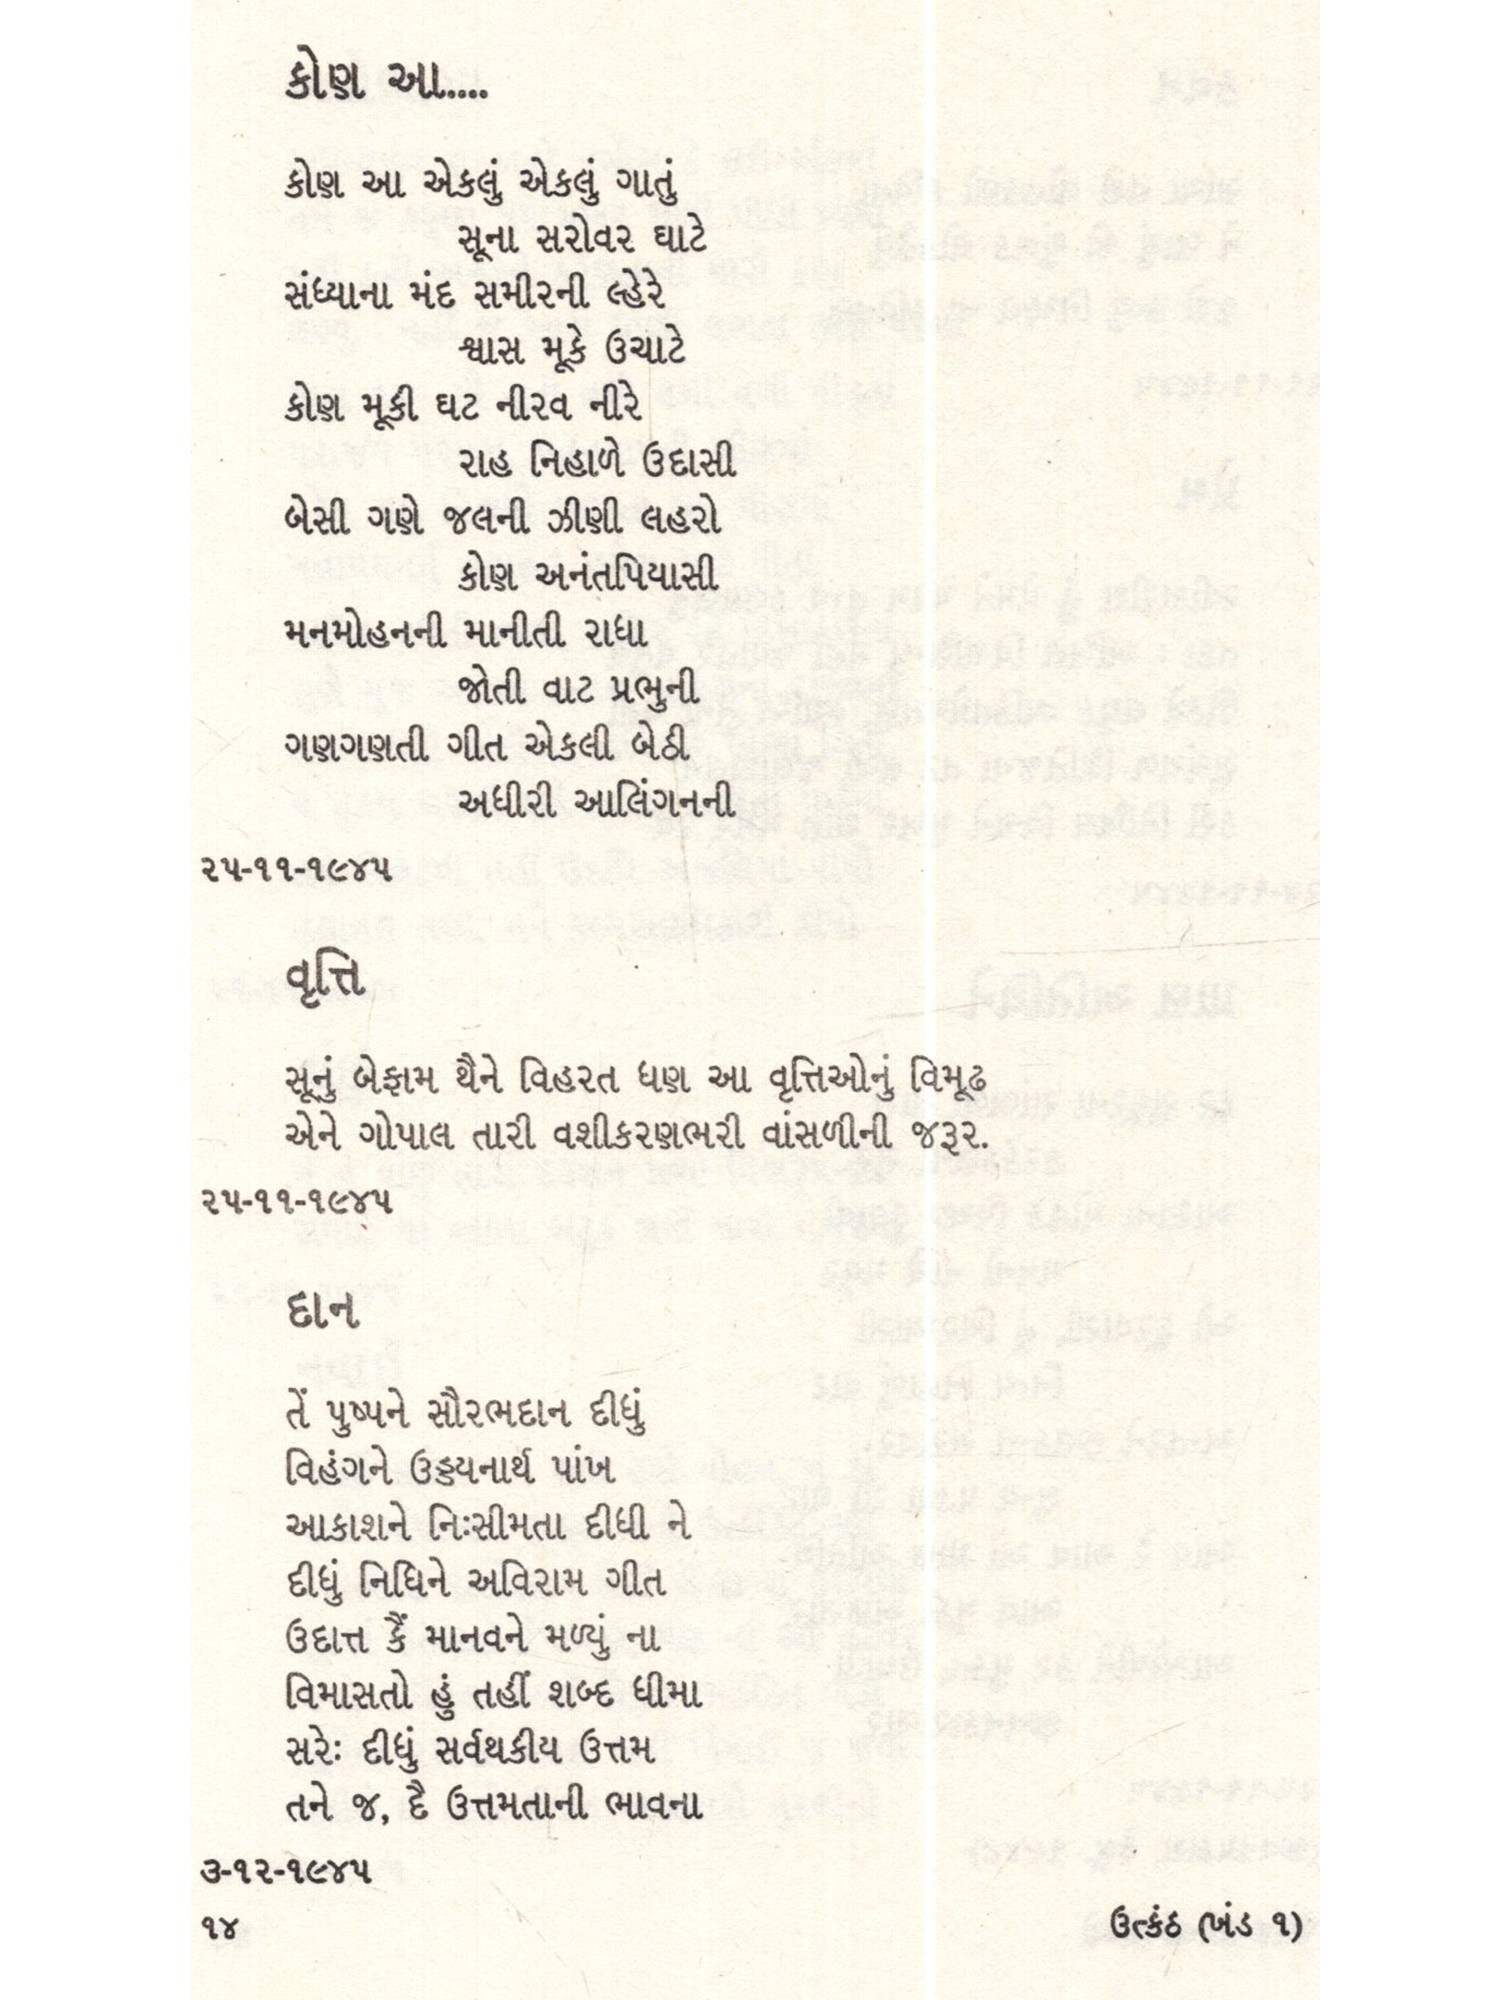 કોણ આ.....
કોણ આ એકલું એકલું ગાતું
સૂના સરોવર ઘાટે
સંધ્યાના મંદ સમીરની લ્હેરે
શ્વાસ મૂકે ઉચાટે
કોણ મૂકી ઘટ નીરવ નીરે
રાહ નિહાળે ઉદાસી
બેસી ગણે જલની ઝીણી લહરો
કોણ અનંતપિયાસી
મનમોહનની માનીતી રાધા
જોતી વાટ પ્રભુની
ગણગણતી ગીત એકલી બેઠી
અધીરી આલિંગનની
૨૫-૧૧-૧૯૪૫
વૃત્તિ
સૂનું બેફામ થૈને વિહરત ધણ આ વૃત્તિઓનું વિમૂઢ
એને ગોપાલ તારી વશીકરણભરી વાંસળીની જરૂર.
૨૫-૧૧-૧૯૪૫
દાન
તેં પુષ્પને સૌરભદાન દીધું
વિહંગને ઉડ્ડયનાર્થ પાંખ
આકાશને નિઃસીમતા દીધી ને
દીધું નિધિને અવિરામ ગીત
ઉદાત્ત કૈં માનવને મળ્યું ના
વિમાસતો હું તહીં શબ્દ ધીમા
સરેઃ દીધું સર્વથકીય ઉત્તમ
તને જ, દૈ ઉત્તમતાની ભાવના
૩-૧૨-૧૯૪૫
૧૪
ઉત્કંઠ (ખંડ ૧)